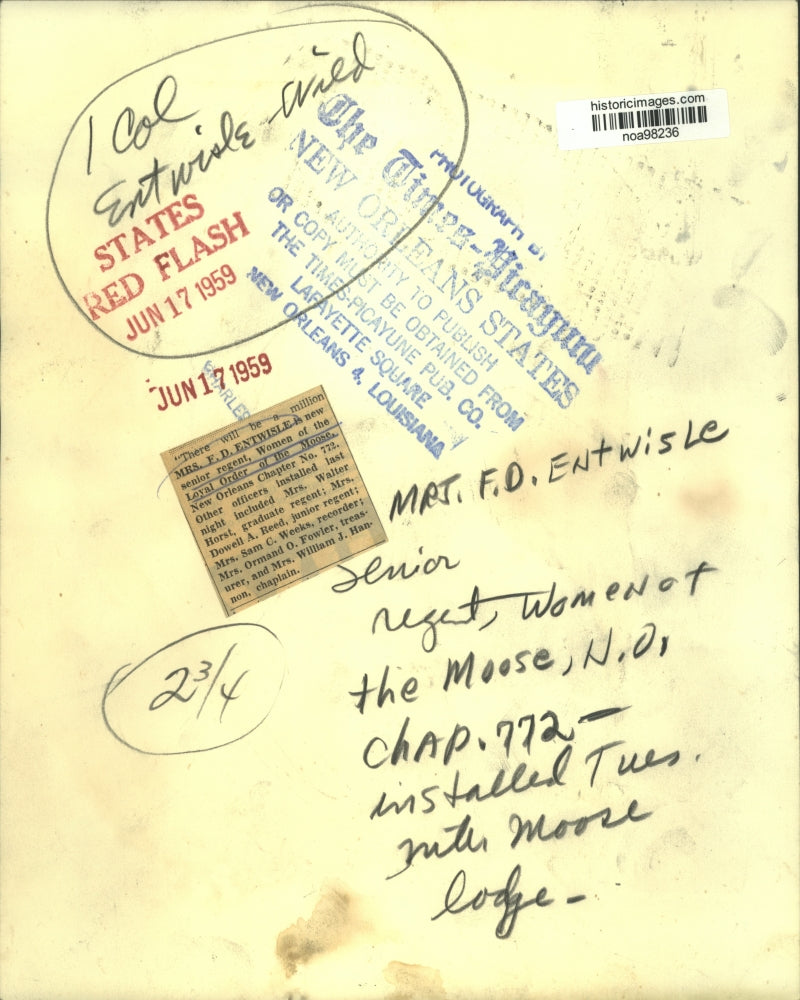 historicimages.com
noa98236
1 Col
Entwisle Wed
STATES
RED FLASH
JUN 17 1959
PHOTOGRAPH BY
The Times-Picayune
NEW ORLEANS STATES
AUTHORITY TO PUBLISH
OR COPY MUST BE OBTAINED FROM
THE TIMES-PICAYUNE PUB. CO.
LAFAYETTE SQUARE
NEW ORLEANS 4, LOUISIANA
JUN 17 1959
"There will be a million
MRS. F. D. ENTWISLE is new
senior regent, Women of the
Loyal Order of the Moose,
New Orleans Chapter No. 772.
Other officers installed last
night included Mrs. Walter
Horst, graduate regent; Mrs.
Dowell A. Reed, junior regent;
Mrs. Sam C. Weeks, recorder;
Mrs. Ormand O. Fowler, treas-
urer, and Mrs. William J. Han-
non, chaplain.
Mrs. F.D. Entwisle
senior
regent, Women of
the Moose, N.O.
Chap. 772 -
installed Tues.
Moose
lodge -
2 3/4